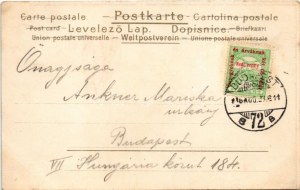 Carte postale Postkarte Cartolina postale
Post card Levelező Lap. Dopisnice. Briefkaart
Union postale universelle Weltpostverein Unione postale universale
Önagysága
Ankner Mariska
urleány
Budapest
VII Hungária körut 184.
72